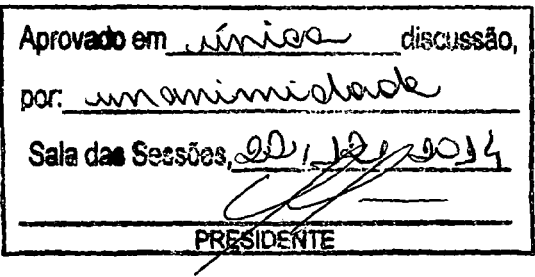 Aprovado em única discussão,
por: unanimidade
Sala das Sessões, 22/12/2014
PRESIDENTE